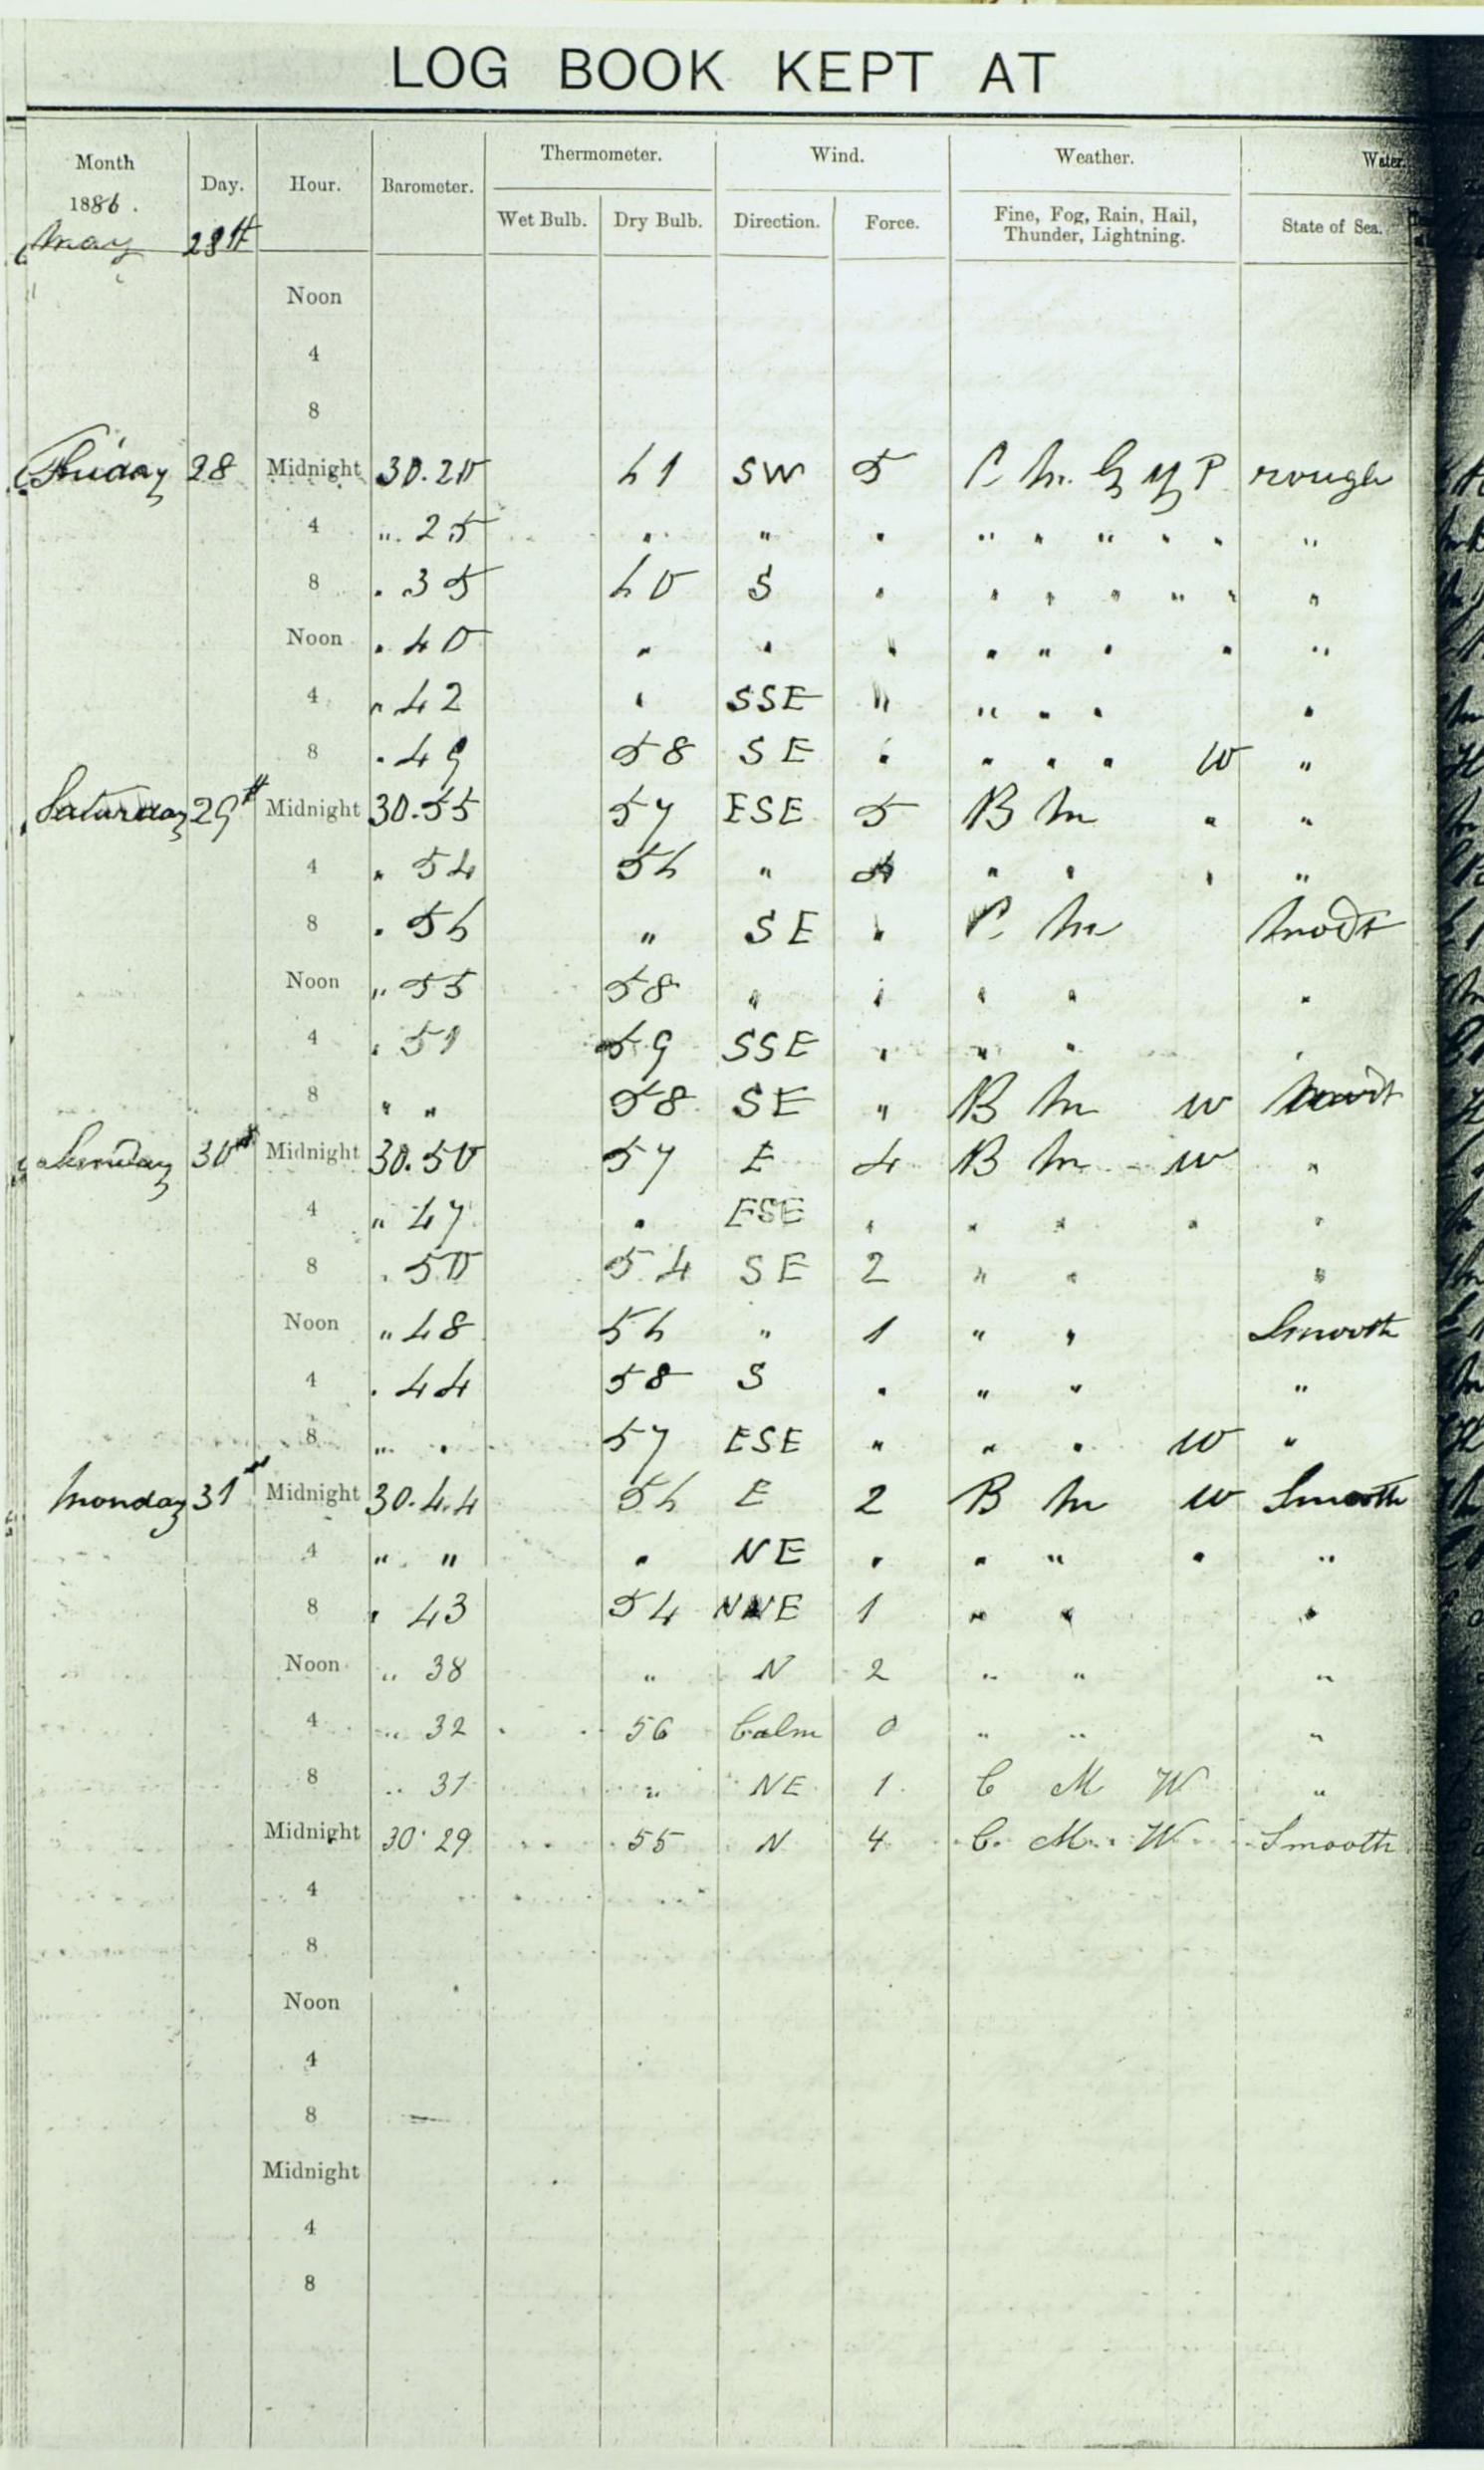 LOG BOOK KEPT AT
Month Day. Hour. Barometer. Thermometer. Wind. Weather. Water.
1886. Wet Bulb. Dry Bulb. Direction. Force. Fine, Fog, Rain, Hail, Thunder, Lightning. State of Sea.
May 28th
Noon
4
8
Friday 28 Midnight 30.20 61 SW 5 C M. G Y P rough
4 ". 25 " " " " " " " " "
8 " .35 60 S " " " " " " "
Noon " 40 " " " " " " " "
4 " 42 " SSE " " " " "
8 " 49 58 SE " " " " W "
Saturday 29th Midnight 30.55 57 ESE 5 B M " "
4 " 54 56 " " " " "
8 " 56 " SE " C M Modt
Noon " 55 58 " " " " "
4 " 51 59 SSE " " " "
8 " " 58 SE " B M W Modt
Sunday 30th Midnight 30.50 57 E 4 B M W "
4 " 47 " ESE " " " " "
8 " 50 54 SE 2 " " "
Noon " 48 56 " 1 " " Smooth
4 " 44 58 S " " " "
8 " " 57 ESE " " " W "
Monday 31st Midnight 30.44 56 E 2 B M W Smooth
4 " " " NE " " " " "
8 " 43 54 NNE 1 " " "
Noon " 38 " N 2 " " "
4 " 32 56 Calm 0 " " "
8 " 31 " NE 1 C M W "
Midnight 30.29 55 N 4 C. M. W Smooth
4
8
Noon
4
8 —
Midnight
4
8